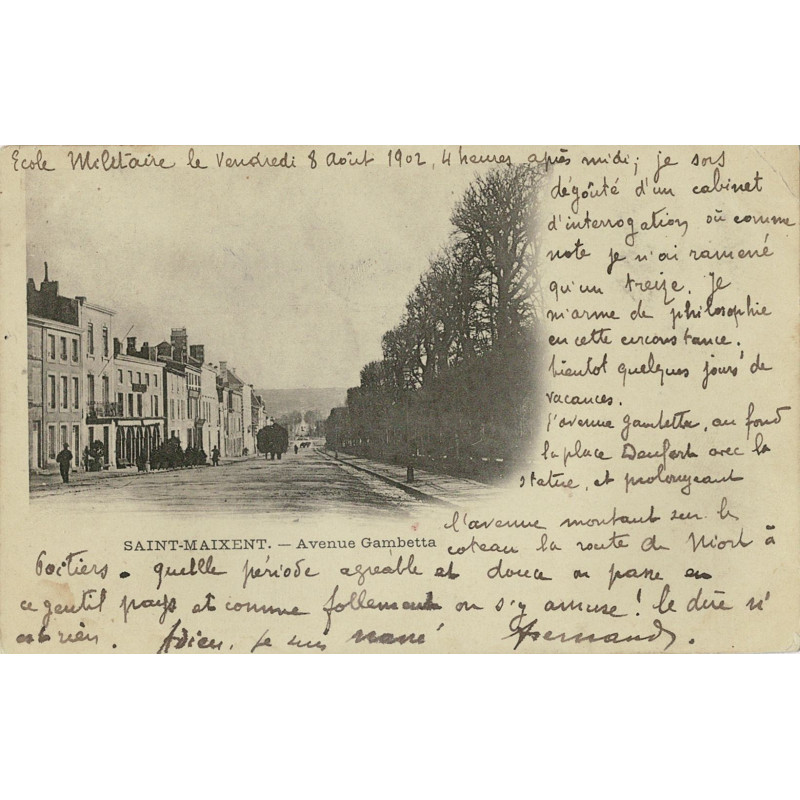 Ecole Militaire le Vendredi 8 Août 1902, 4 heures après midi; je sors
dégoûté d'un cabinet
d'interrogation, où comme
note je n'ai ramené
qu'un treize. Je
m'arme de philosophie
en cette circonstance.
bientôt quelques jours de
vacances.
l'avenue Gambetta, au fond
la place Denfert avec la
statue, et prolongeant
l'avenue montant sur le
coteau la route de Niort à
SAINT-MAIXENT. — Avenue Gambetta
Poitiers. quelle période agréable et douce on passe en
ce gentil pays et comme follement on s'y amuse! le dire n'
est rien. Adieu, je suis navré Fernand.